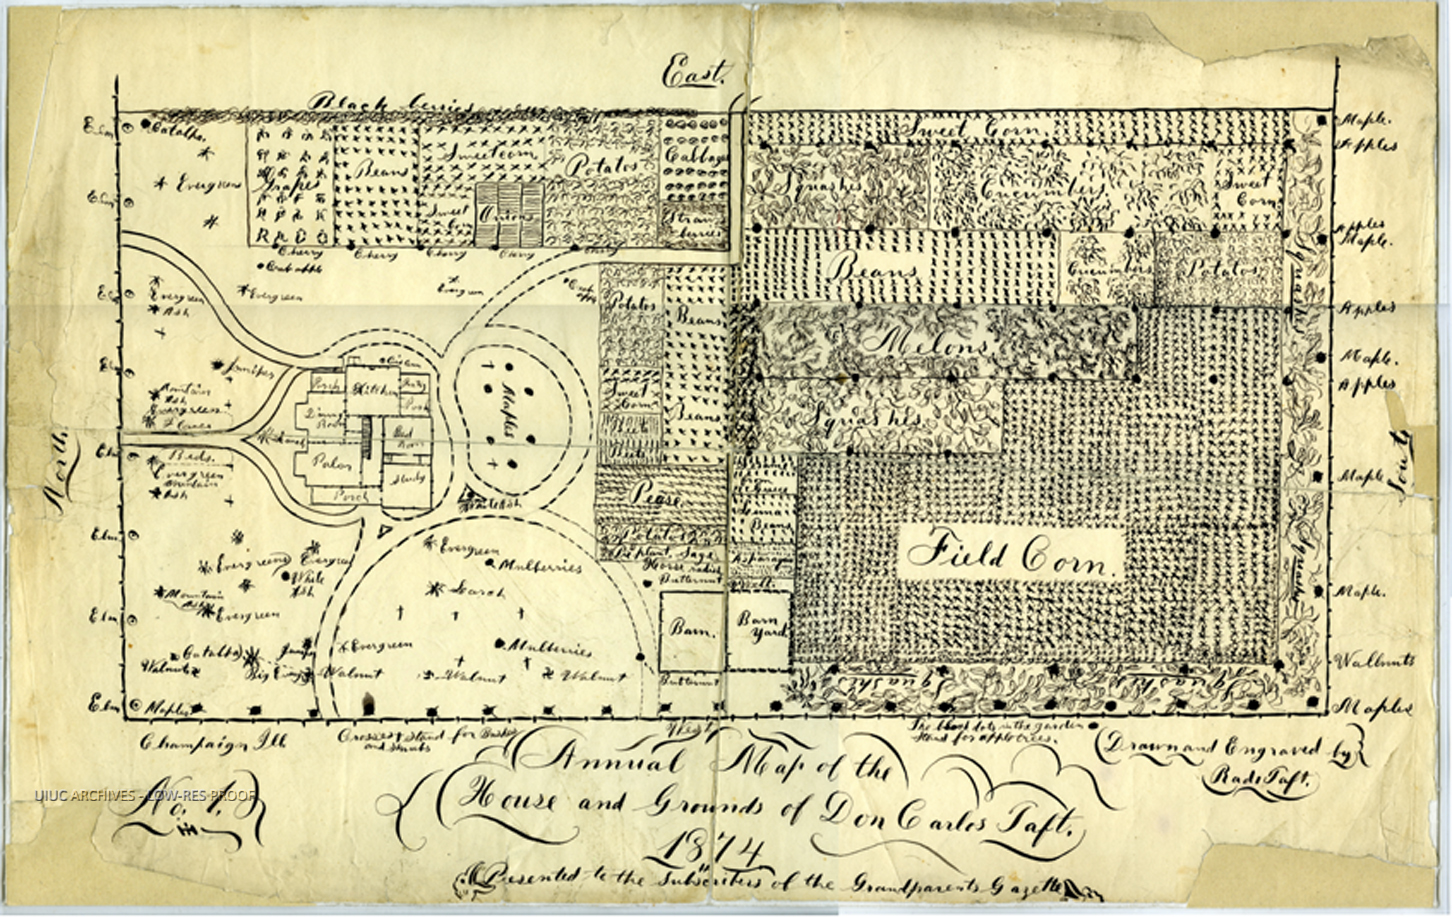 East.
Black berries
Elm
Catalba.
Evergreen
Grapes
Beans
Sweetcorn
Potatos
Cabbage
Sweet Corn.
Maple.
Apples
Elm
Sweet Corn
Onions
Straw berries
Squashes
Cucumbers
Sweet Corn
Apples
Maple.
Cherry Cherry Cherry Cherry Cherry
Crab apple
Beans
Cucumbers
Potatos
Squashes
Elm
Evergreen
Ash
Evergreen
Evergreen
Potatos
Beans
Apples
Melons
Maple.
Elm
Juniper
Cistern
Kitchen
Maples
Apples
Mountain Ash
Evergreen
Sweet Corn
Beans
Squashes
North
South
Elm
Beds.
Evergreen
Mountain Ash
Parlor
Bed Room
Study
Porch
Maple.
Pease
Beans
Elm
Evergreens
Evergreen
White Ash
Evergreen
Mulberries
Potatos
Pi plant, Sage
Horse radish
Butternut
Field Corn.
Squashes
Mountain Ash
Evergreen
Larch
Maple.
Elm
Barn.
Barn Yard
Catalba
Walnuts
Evergreen
Mulberries
Walnut
Walnut
Walnut
Butternut
Squashes
Squashes
Walnuts
Elm
Maples
Maples
West
Champaign Ill
Crosses † stand for Bushes
and shrubs
The black dots in the garden
stand for apple trees.
Drawn and Engraved by
Rado Taft.
Annual Map of the
House and Grounds of Don Carlos Taft.
1874
Presented to the Subscribers of the Grandparents Gazette
No. 1.
UIUC ARCHIVES - LOW-RES PROOF